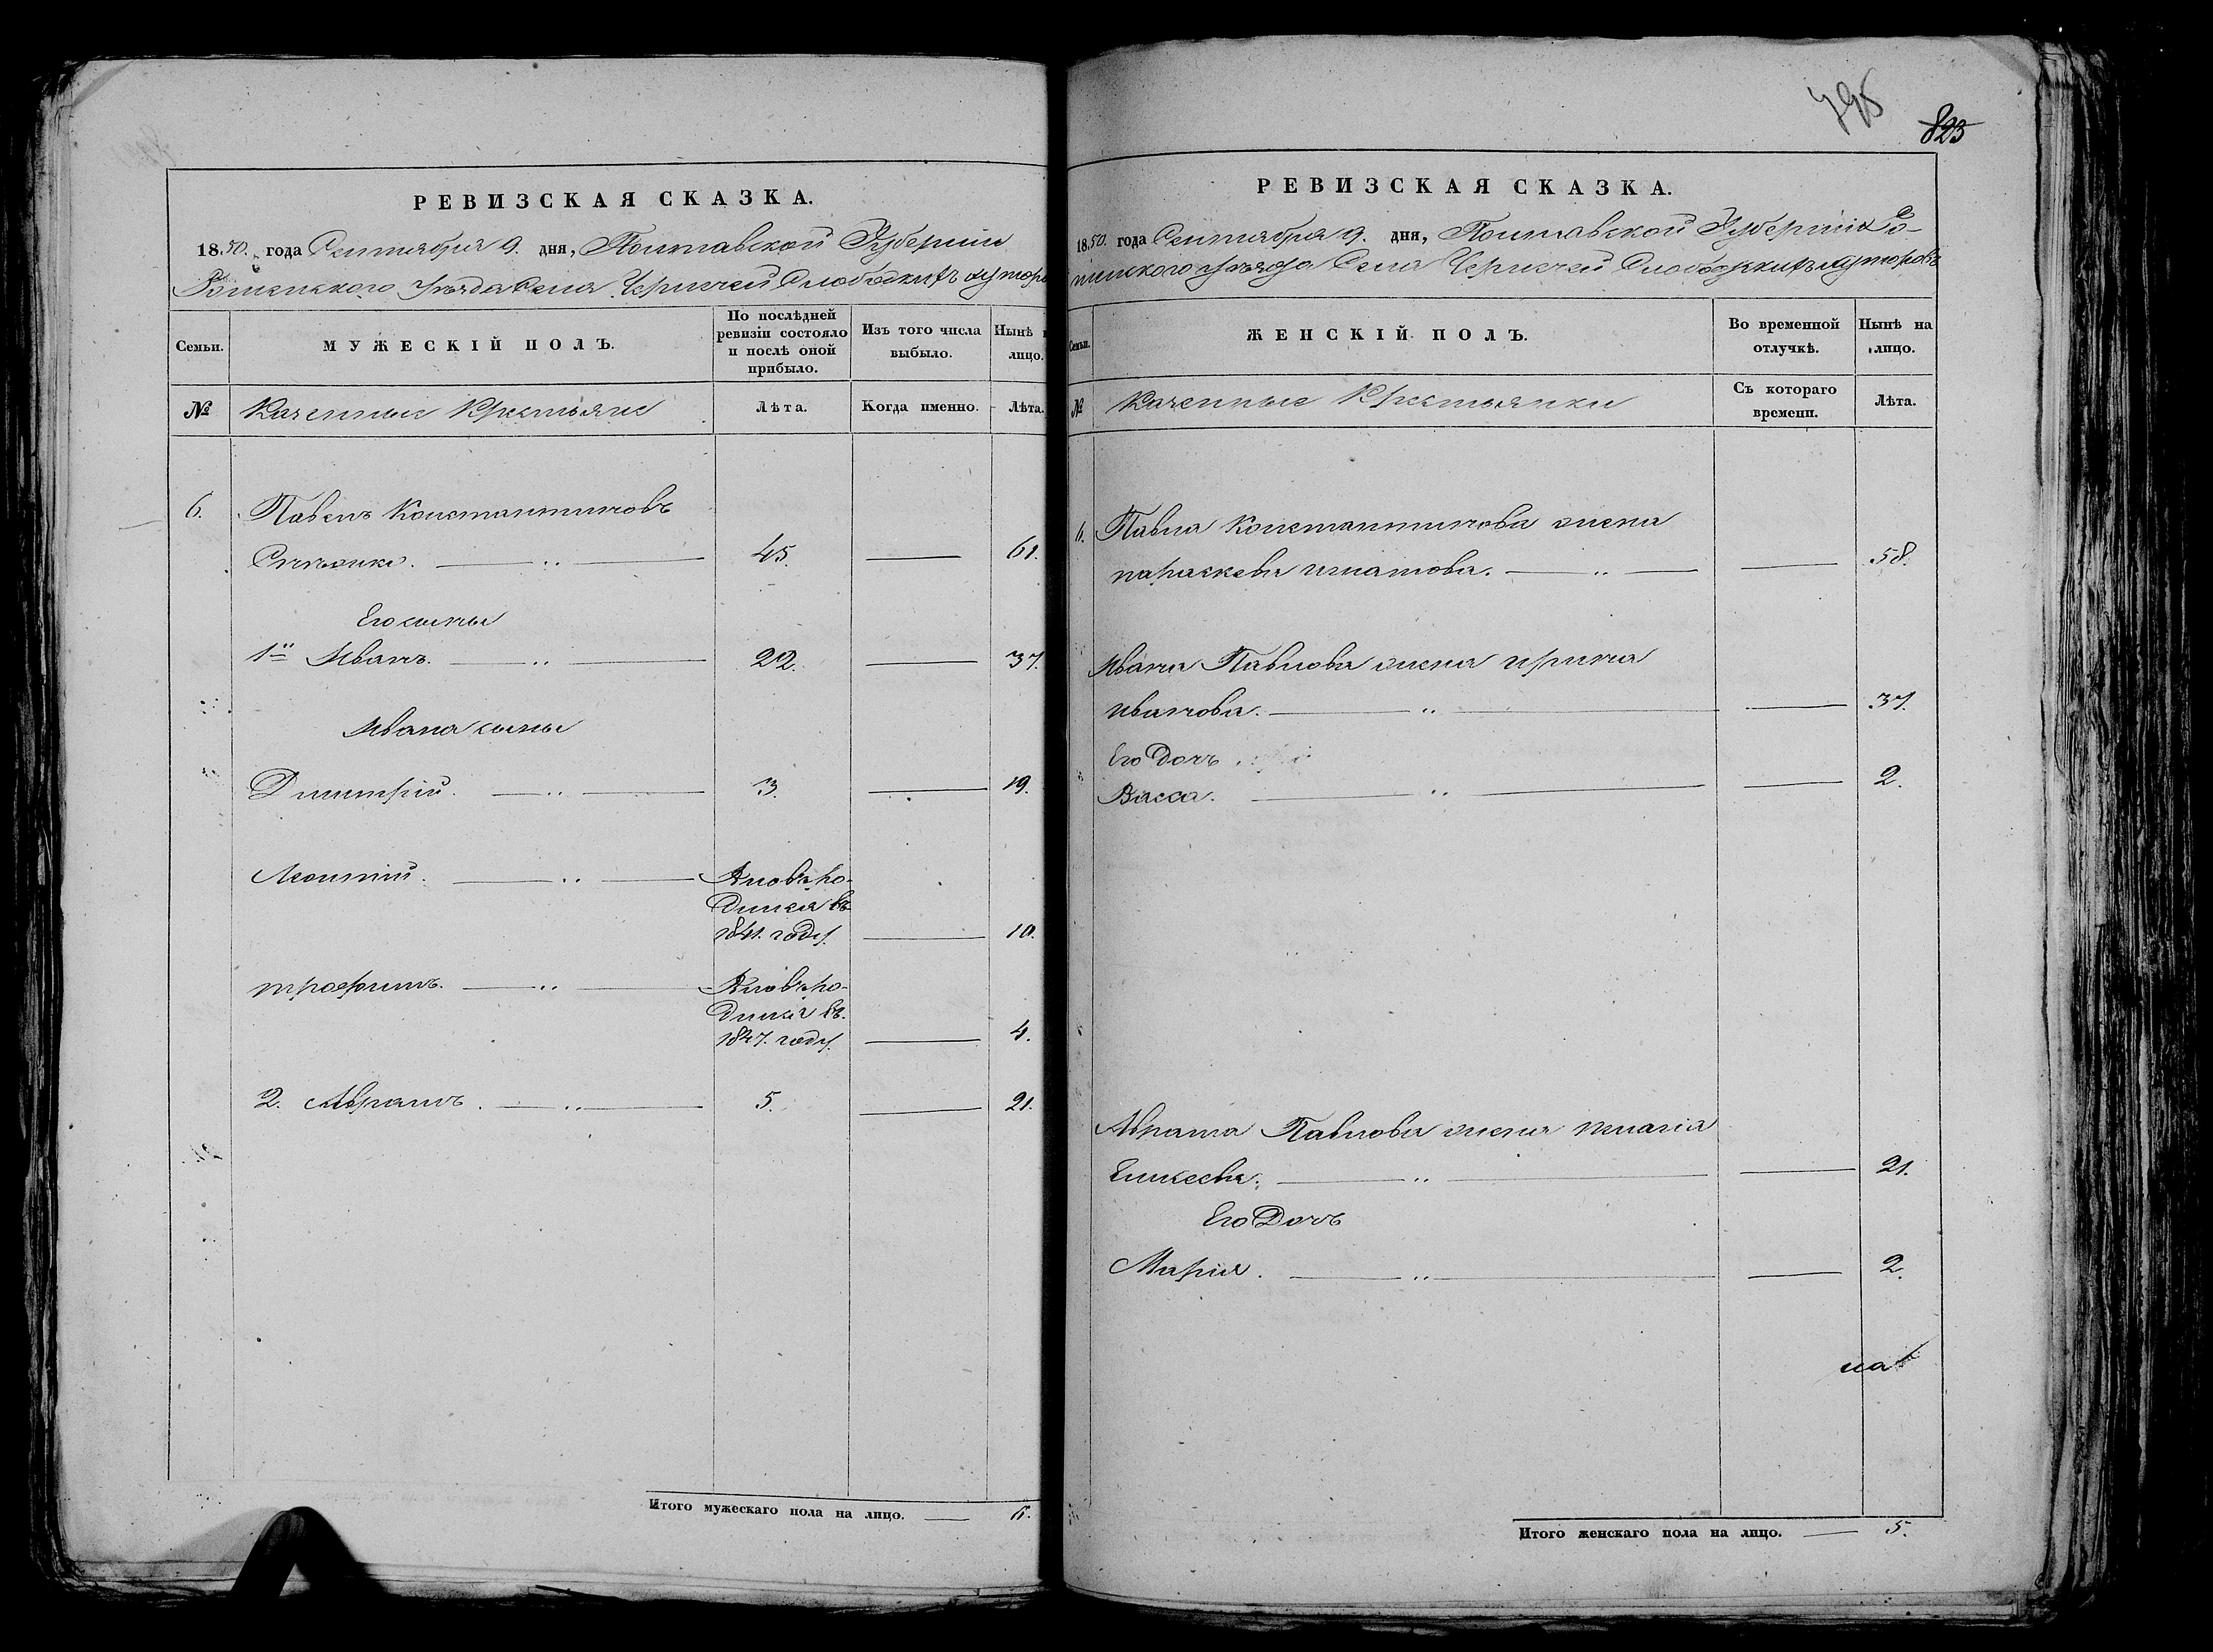 РЕВИЗСКАЯ СКАЗКА.
1850. года Сентября 9. дня, Полтавской Губернии
Роменского Уезда Села Чернечей Слободки хуторо
Семьи.
МУЖЕСКІЙ ПОЛЪ.
По послѣдней ревизіи состояло и послѣ оной прибыло.
Изъ того числа выбыло.
Нынѣ лицо.
№
Казенные Крестьяне
Лѣта.
Когда именно.
Лѣта.
6. Павелъ Константиновъ
45. 61.
Его сыны
1й Иванъ. 22. 37.
Ивана сыны
Димитрій. 3. 19.
Леонтій. Вновь ро-
дился въ
1841. году. 10.
трофимъ. Вновь ро-
дился въ.
1847. году. 4.
2. Аврамъ. 5. 21.
Итого мужескаго пола на лицо. 6.
795
823
РЕВИЗСКАЯ СКАЗКА.
1850. года Сентября 9. дня, Полтавской Губерніи Ро-
менского Уезда Села Чернечей Слободки хуторовъ
Семьи.
ЖЕНСКІЙ ПОЛЪ.
Во временной отлучкѣ.
Нынѣ на лицо.
№
Казенные Крестьянки
Съ котораго времени.
Лѣта.
6. Павла Константинова жена
параскева игнатова. 58.
Ивана Павлова жена ирина
иванова. 37.
Его Дочь
Васса. 2.
Аврама Павлова жена пелагія
21.
Его Дочь
Марія. 2.
Итого женскаго пола на лицо. 5.